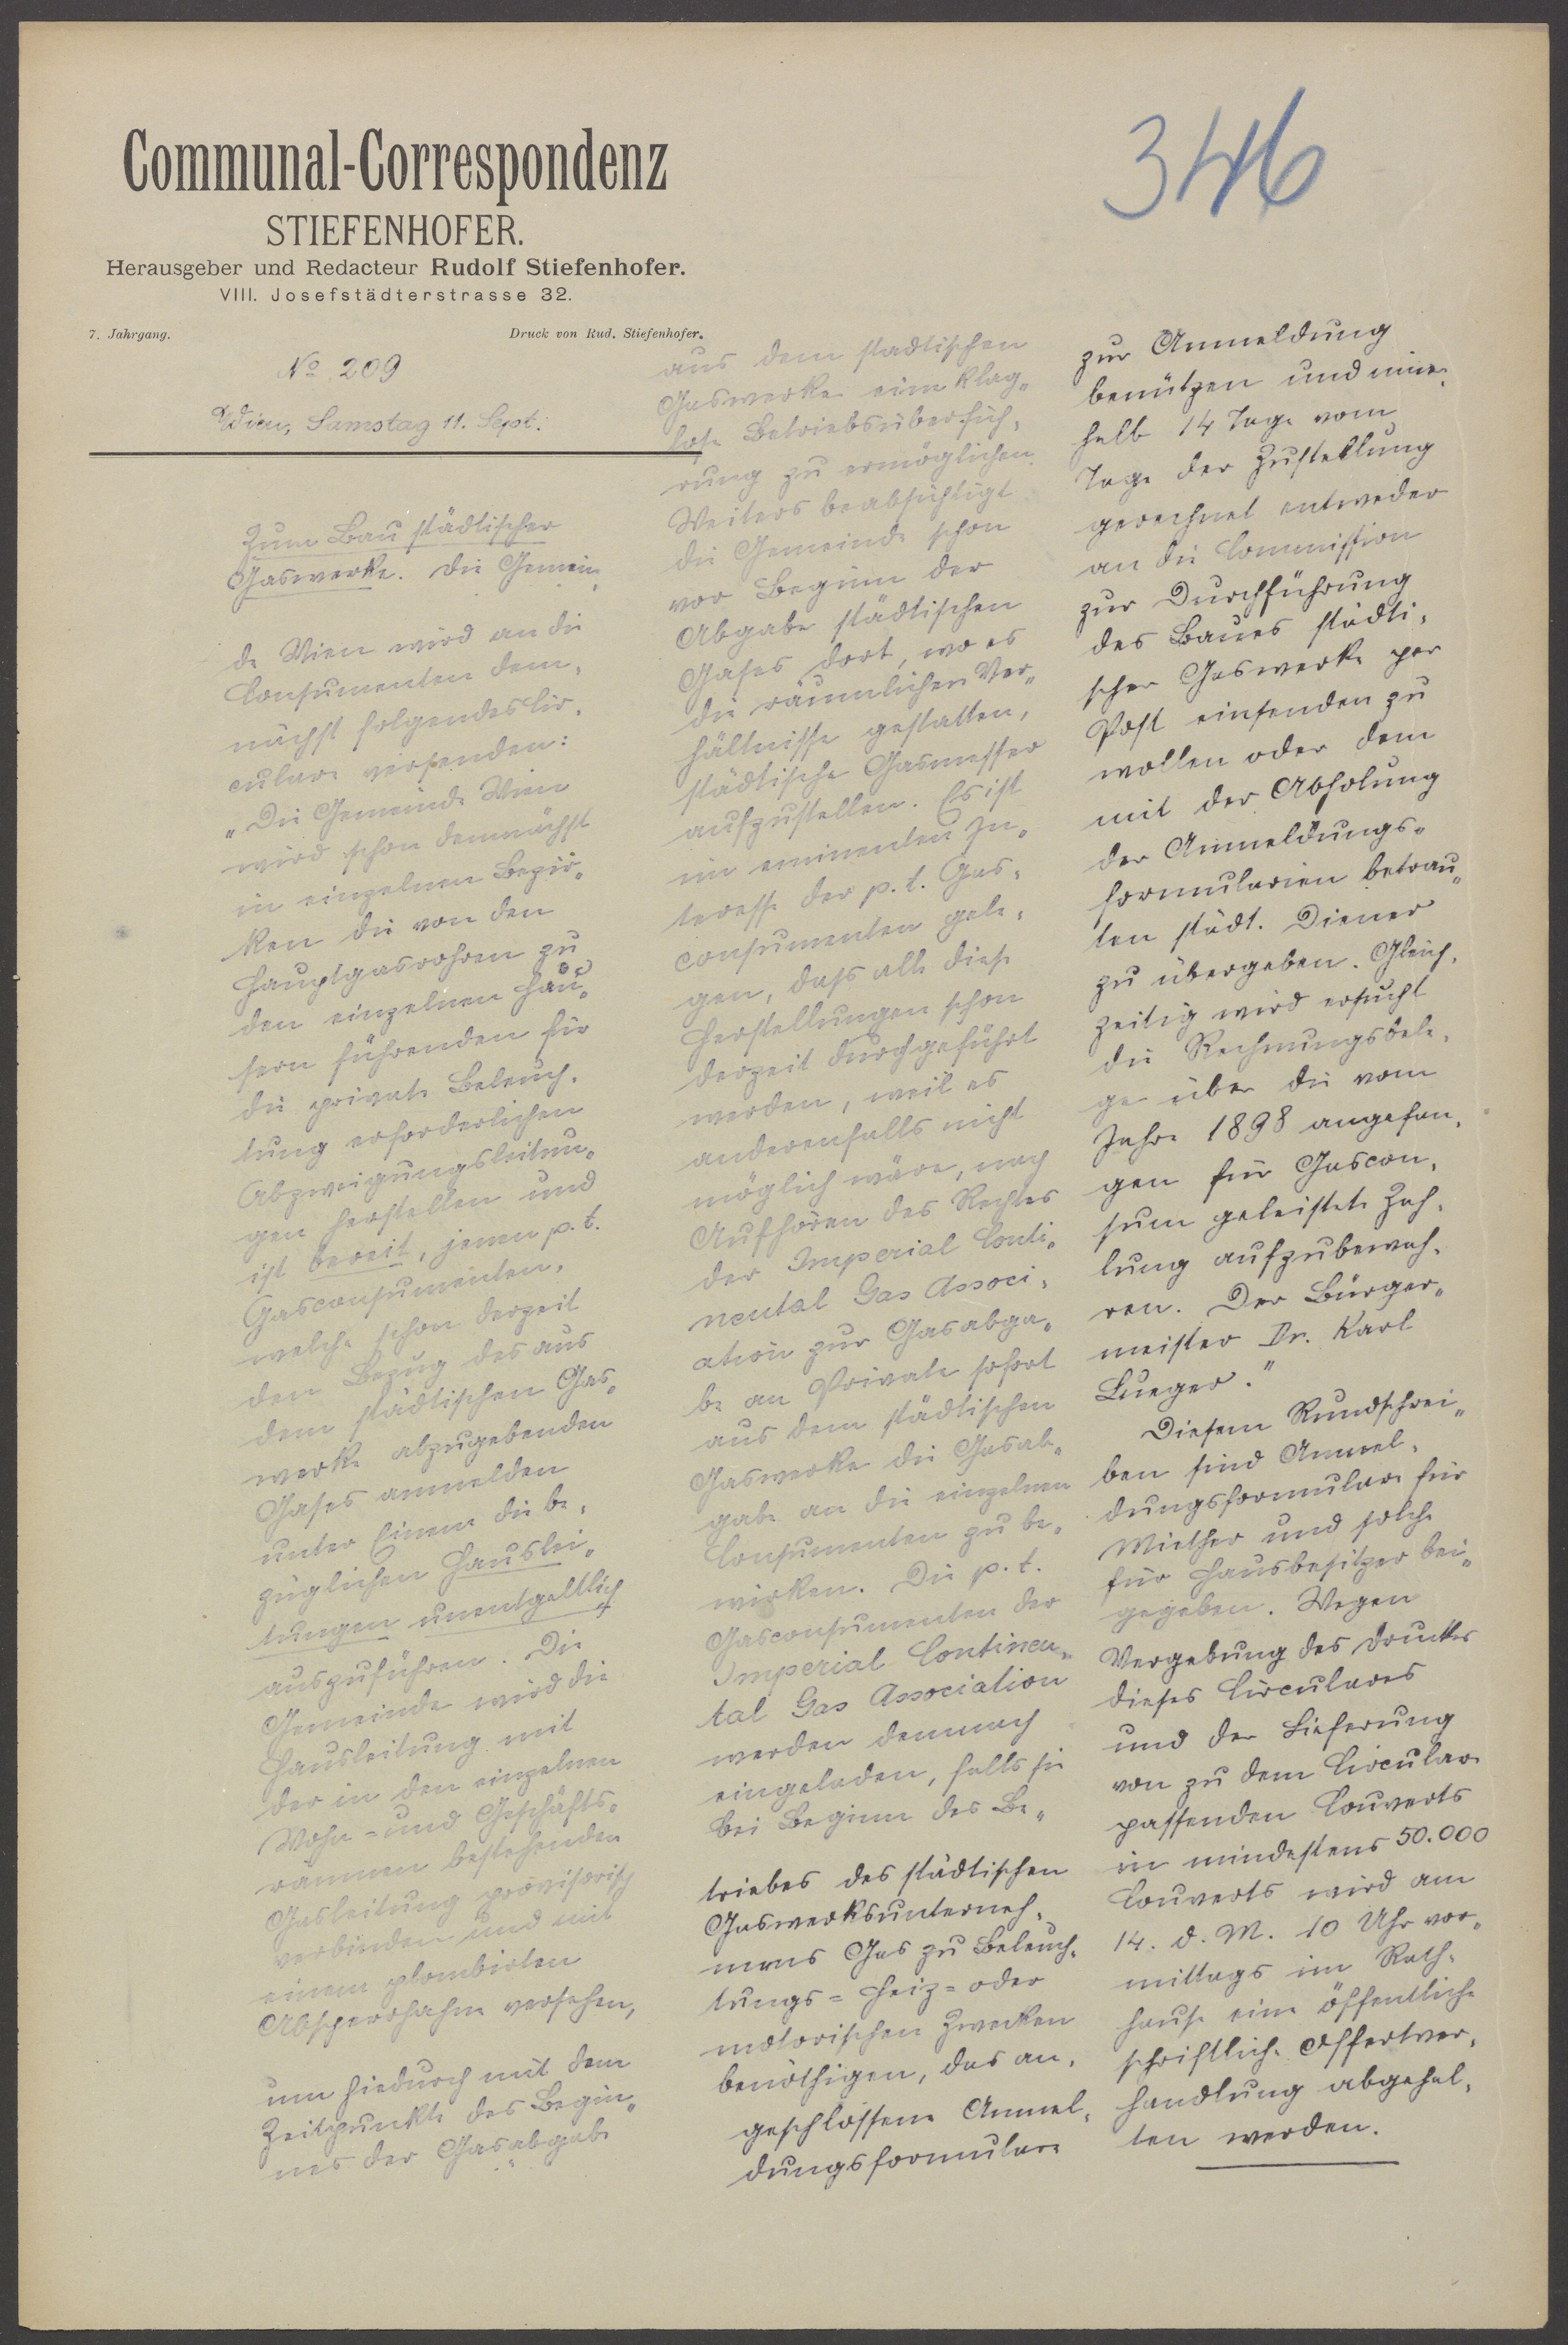 346
Communal-Correspondenz
STIEFENHOFER.
Herausgeber und Redacteur Rudolf Stiefenhofer.
VIII. Josefstädterstrasse 32.
7. Jahrgang.
Druck von Rud. Stiefenhofer.
No 209
Wien, Samstag 11. Sept.
Zum Bau städtischer
Gaswerke. Die Gemein-
de Wien wird an die
Consumenten dem-
nächst folgendes Cir-
culare versenden:
"Die Gemeinde Wien
wird schon demnächst
in einzelnen Bezir-
ken die von den
Hauptgasrohren zu
den einzelnen Häu-
sern führenden für
die private Beleuch-
tung erforderlichen
Abzweigungsleitun-
gen herstellen und
ist bereit, jenen p. t.
Gasconsumenten,
welche schon derzeit
den Bezug des aus
dem städtischen Gas-
werke abzugebenden
Gases anmelden
unter Einem die be-
züglichen Hauslei-
tungen unentgeltlich
auszuführen. Die
Gemeinde wird die
Hausleitung mit
der in den einzelnen
Wohn- und Geschäfts-
räumen bestehenden
Gasleitung provisorisch
verbinden und mit
einem plombirten
Absperrhahn versehen,
um hiedurch mit dem
Zeitpunkte des Begin-
nes der Gasabgabe
aus dem städtischen
Gaswerke eine klag-
lose Betriebsüberfüh-
rung zu ermöglichen.
Weiters beabsichtigt
die Gemeinde schon
vor Beginn der
Abgabe städtischen
Gases dort, wo es
die räumlichen Ver-
hältnisse gestatten,
städtische Gasmesser
aufzustellen. Es ist
im eminenten In-
teresse der p. t. Gas-
consumenten gele-
gen, dass alle diese
Herstellungen schon
derzeit durchgeführt
werden, weil es
anderenfalls nicht
möglich wäre, nach
Aufhören des Rechtes
der Imperial Conti-
nental Gas Associ-
ation zur Gasabga-
be an Private sofort
aus dem städtischen
Gaswerke die Gasab-
gabe an die einzelnen
Consumenten zu be-
wirken. Die p. t.
Gasconsumenten der
Imperial Continen-
tal Gas Association
werden demnach
eingeladen, falls sie
bei Beginn des Be-
triebes des städtischen
Gaswerksunterneh-
mens Gas zu Beleuch-
tungs- Heiz- oder
motorischen Zwecken
benöthigen, das an-
geschlossene Anmel-
dungsformulare
zur Anmeldung
benützen und inner-
halb 14 Tage vom
Tage der Zustellung
gerechnet entweder
an die Commission
zur Durchführung
des Baues städti-
scher Gaswerke per
Post einsenden zu
wollen oder dem
mit der Abholung
der Anmeldungs-
formularien betrau-
ten städt. Diener
zu übergeben. Gleich-
zeitig wird ersucht
die Rechnungsbele-
ge über die vom
Jahre 1898 angefan-
gen für Gascon-
sum geleistete Zah-
lung aufzubewah-
ren. Der Bürger-
meister Dr. Karl
Lueger."
Diesem Rundschrei-
ben sind Anmel-
dungsformulare für
Miether und solche
für Hausbesitzer bei-
gegeben. Wegen
Vergebung des Druckes
dieses Circulares
und der Lieferung
von zu dem Circulare
passenden Couverts
in mindestens 50.000
Couverts wird am
14. d. M. 10 Uhr vor-
mittags im Rath-
hause eine öffentliche
schriftliche Offertver-
handlung abgehal-
ten werden.